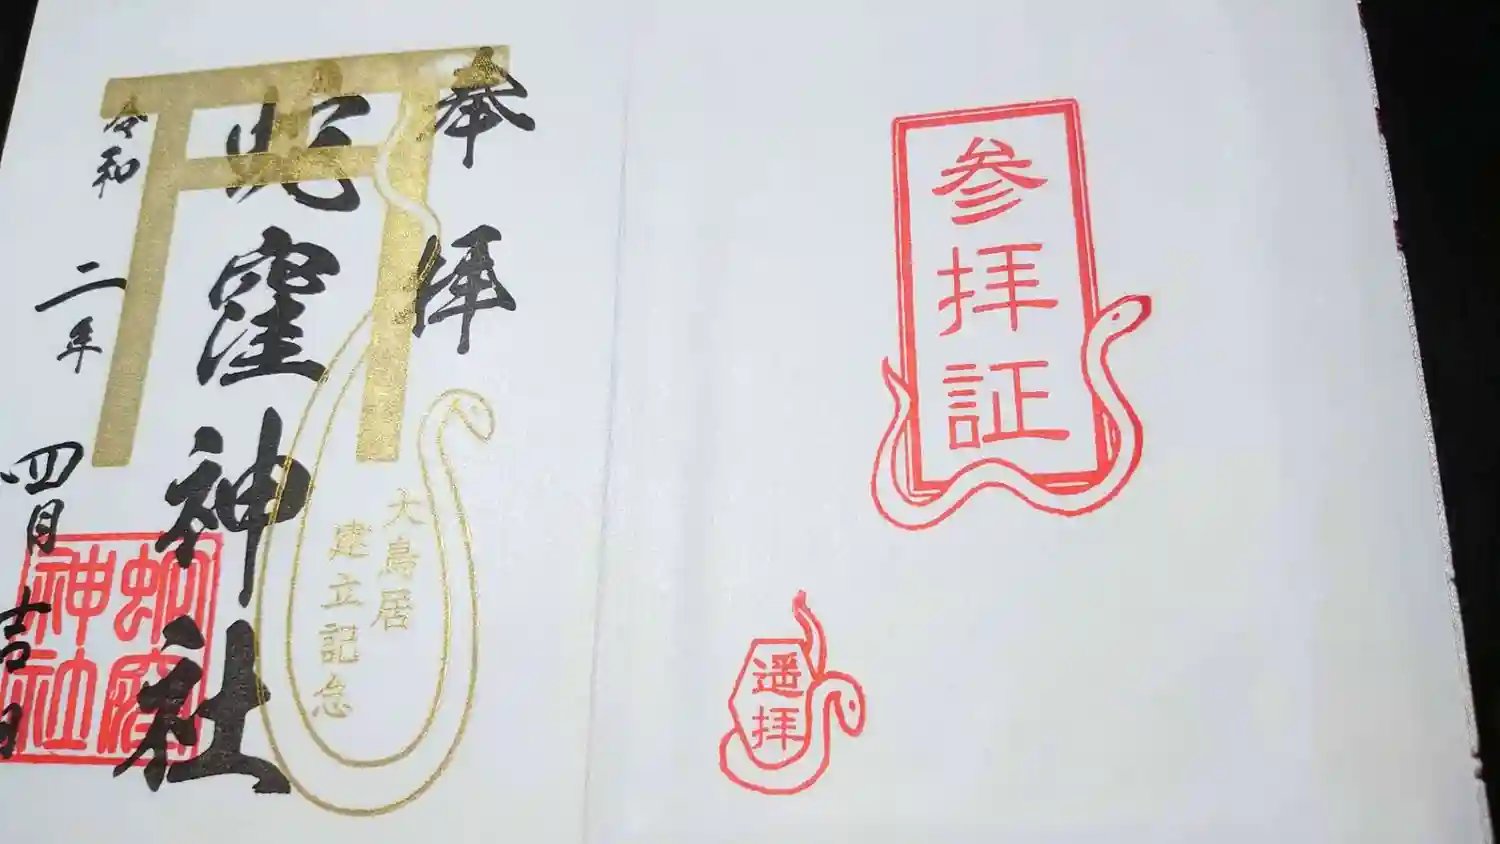 参拝証
遥拝
奉拝
蛇窪神社
大鳥居
建立記念
令和二年四月吉日
蛇窪
神社